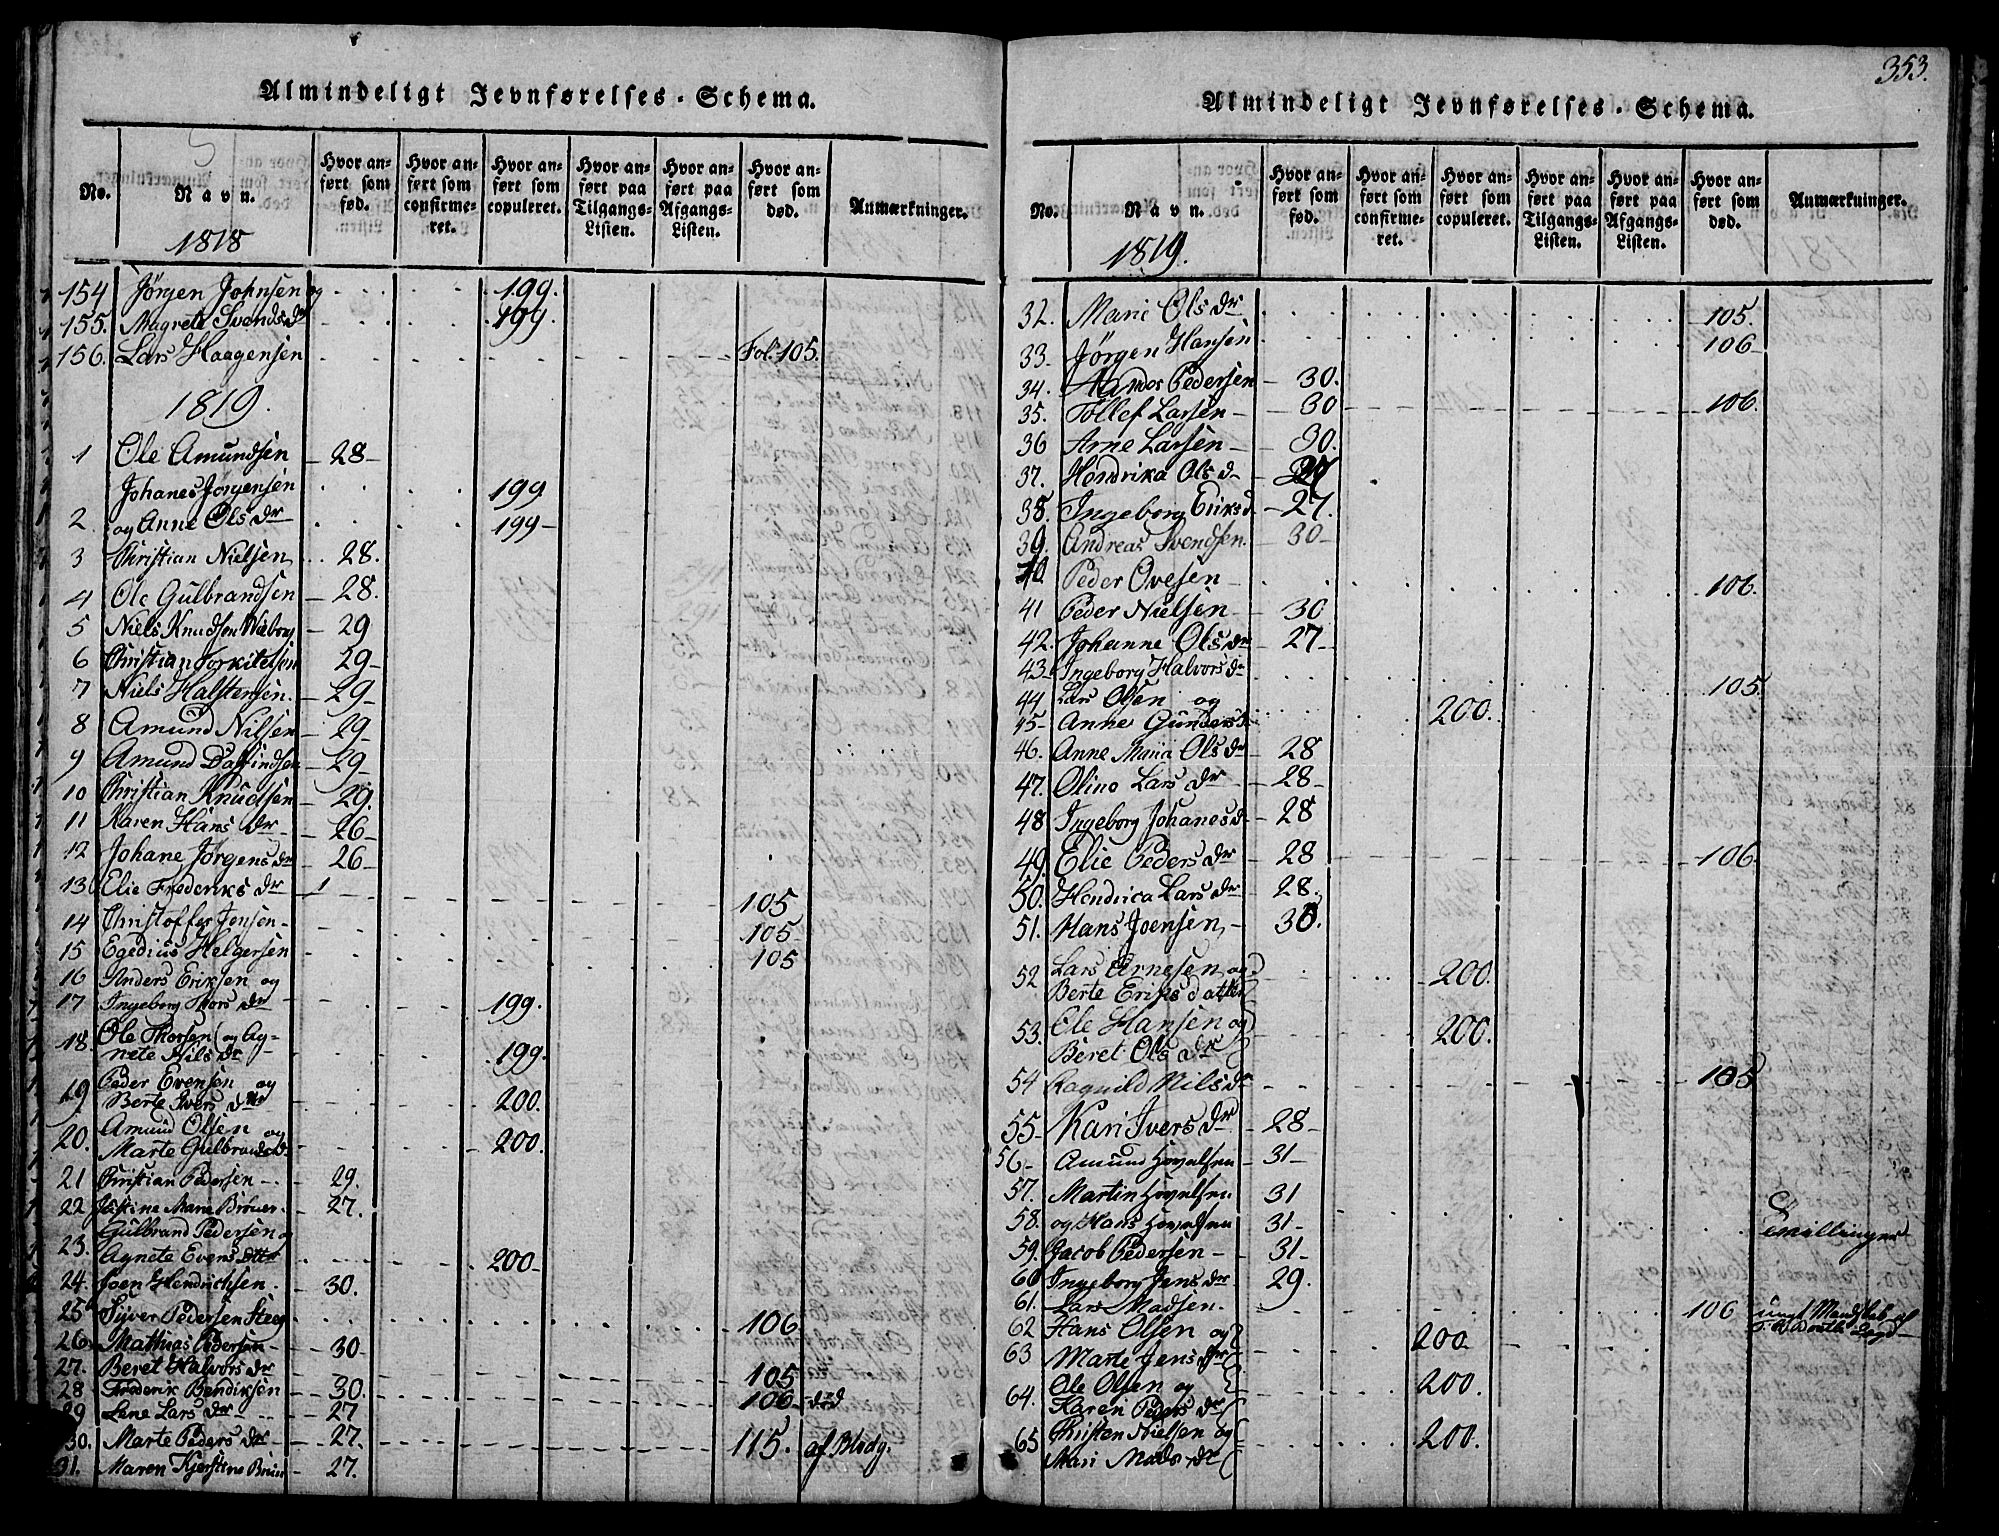 353.
Almindeligt Jevnførelses-Schema.
No. Navn. Hvor anført som fød. Hvor anført som confirmeret. Hvor anført som copuleret. Hvor anført paa Tilgangs-Listen. Hvor anført paa Afgangs-Listen. Hvor anført som død. Anmærkninger.
1818
154 Jörgen Johnsen og 199.
155. Magrete Svends dr 199.
156. Lars Haagensen Fol. 105.
1819.
1 Ole Amundsen 28
Johanes Jörgensen 199
2. og Anne Ols dr 199
3 Christian Nielsen 28.
4 Ole Gulbrandsen 28.
5 Niels Knudsen 29
6 Christian Torkitelsen 29
7 Niels Halstensen. 29
8 Amund Nilsen 29
9 Amund Daffindsen 29
10 Christian Knudsen 29.
11 Karen Hans dr 26
12 Johane Jörgens dr 26
13 Elie Frederiks dr 1 105
14 Christoffer Jensen 105
15 Egedius Helgersen 105
16 Anders Eriksen og
17 Ingeborg Thors dr 199.
18. Ole Thorsen og Ag-
nete Nils dr 199.
19 Peder Evensen og
Berte Ivers dr 200.
20. Amund Olsen og
Marte Gulbrands d. 200.
21 Christian Pedersen 29.
22 Justine Marie Bröuer 27.
23. Gulbrand Pedersen og
Agnete Evens dtter 200
24. Joen Hendrichsen. 30.
25 Syver Pedersen Steeg 106
26 Mathias Pedersen 30
27. Beret Halvors dr 105
28 Frederik Bendiksen 30. 106 död
29 Lene Lars dr 27
30. Marte Peders dr 27. 115. af Blodg.
31. Maren Kjerstine Bruun 27.
Almindeligt Jevnførelses-Schema.
No. Navn. Hvor anført som fød. Hvor anført som confirmeret. Hvor anført som copuleret. Hvor anført paa Tilgangs-Listen. Hvor anført paa Afgangs-Listen. Hvor anført som død. Anmærkninger.
1819.
32. Marie Ols dr 105.
33. Jörgen Hansen 106
34. Pedersen 30.
35. Tollef Larsen 30 106.
36 Arne Larsen 30.
37. Hendrika Ols d 27
38. Ingeborg Eriks d. 27.
39. Andreas Svendsen. 30
40 Peder Ovesen 106.
41 Peder Nielsen 30
42. Johanne Ols dr 27
43 Ingeborg Halvors dr 105.
44 Lars Olsen og
45 Anne Gunders d. 200.
46. Anne Maria Ols dr 28
47. Oline Lars dr 28
48 Ingeborg Johanes d. 28
49. Elie Peders dr 28 106
50. Hendrica Lars dr 28.
51. Hans Joensen 30.
52 Lars Arnesen og
Berte Eriks datter 200.
53. Ole Hansen og
Beret Ols dr 200.
54 Ragnild Nils dr 105
55 Kari Ivers dr 28
56 Amund Hovelsen 31
57. Martin Hovelsen 31
58. og Hans Hovelsen 31
59. Jacob Pedersen 31
60 Ingeborg Jens dr 29.
61. Lars Madsen. 106
62 Hans Olsen og
63 Marte Jens dr 200
64. Ole Olsen og
Karen Peders dr 200.
65 Christen Nielsen og
Mari Mads dr 200.